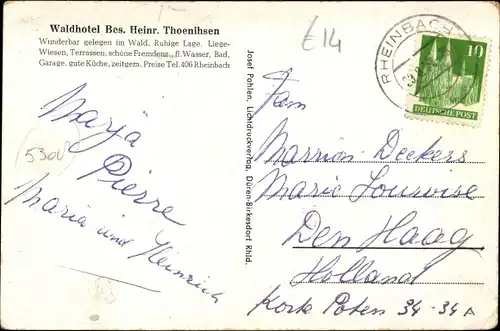 Waldhotel Bes. Heinr. Thoenihsen
Wunderbar gelegen im Wald. Ruhige Lage. Liege-
Wiesen, Terrassen, schöne Fremdenz., fl. Wasser, Bad,
Garage, gute Küche, zeitgem. Preise Tel. 406 Rheinbach
£14
5300
Marja
Pierre
Maria und Heinrich
Josef Pohlen, Lichtdruckverlag, Düren-Birkesdorf Rhld.
RHEINBACH
10
DEUTSCHE POST
Fam
Marrion Deckers
Marie Louwise
Den Haag
Holland
Korte Poten 34-34A